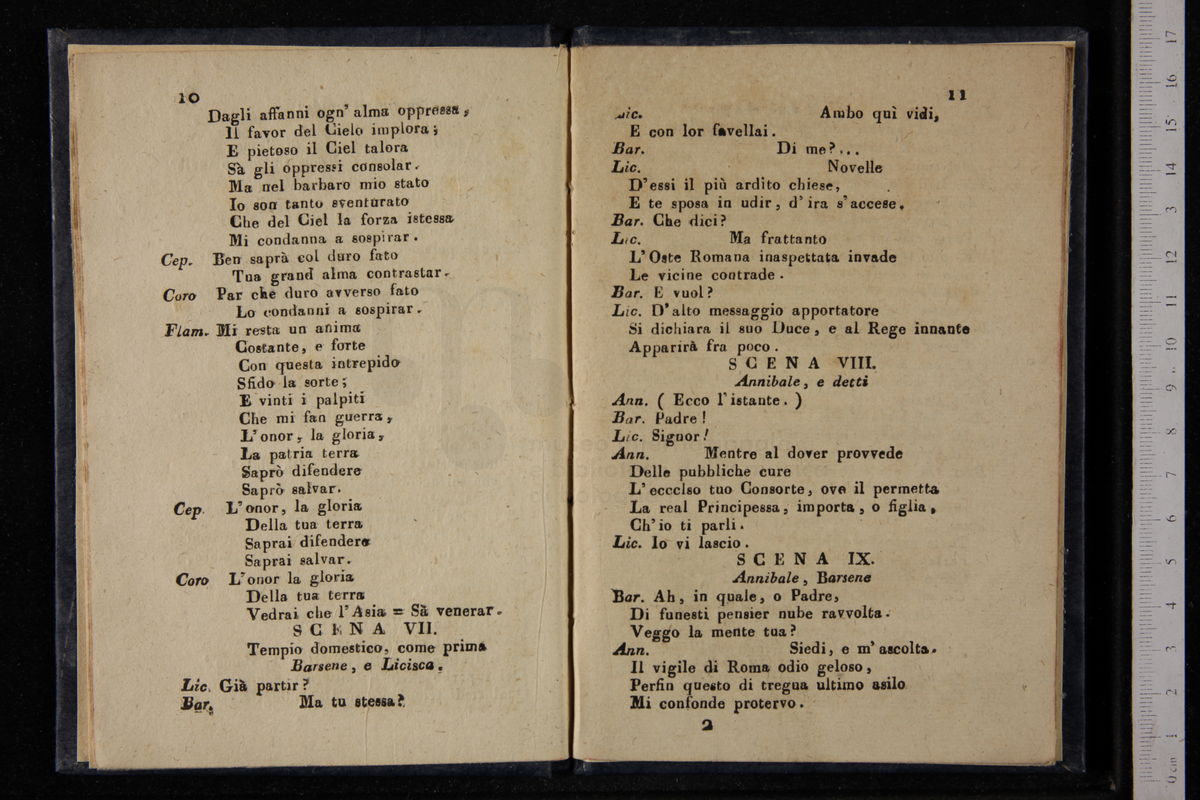 10
Dagli affanni ogn' alma oppressa,
Il favor del Cielo implora;
E pietoso il Ciel talora
Sà gli oppressi consolar.
Ma nel barbaro mio stato
Io son tanto sventurato
Che del Ciel la forza istessa
Mi condanna a sospirar.
Cep. Ben saprà col duro fato
Tua grand alma contrastar.
Coro Par che duro avverso fato
Lo condanni a sospirar.
Flam. Mi resta un anima
Costante, e forte
Con questa intrepido
Sfido la sorte;
E vinti i palpiti
Che mi fan guerra,
L'onor, la gloria,
La patria terra
Saprò difendere
Saprò salvar.
Cep. L'onor, la gloria
Della tua terra
Saprai difendere
Saprai salvar.
Coro L'onor la gloria
Della tua terra
Vedrai che l'Asia = Sà venerar.
SCENA VII.
Tempio domestico, come prima
Barsene, e Licisca.
Lic. Già partir?
Bar. Ma tu stessa?
11
Lic. Ambo quì vidi,
E con lor favellai.
Bar. Di me?...
Lic. Novelle
D'essi il più ardito chiese,
E te sposa in udir, d'ira s'accese.
Bar. Che dici?
Lic. Ma frattanto
L'Oste Romana inaspettata invade
Le vicine contrade.
Bar. E vuol?
Lic. D'alto messaggio apportatore
Si dichiara il suo Duce, e al Rege innante
Apparirà fra poco.
SCENA VIII.
Annibale, e detti
Ann. ( Ecco l'istante. )
Bar. Padre!
Lic. Signor!
Ann. Mentre al dover provvede
Delle pubbliche cure
L'eccelso tuo Consorte, ove il permetta
La real Principessa, importa, o figlia,
Ch'io ti parli.
Lic. Io vi lascio.
SCENA IX.
Annibale, Barsene
Bar. Ah, in quale, o Padre,
Di funesti pensier nube ravvolta.
Veggo la mente tua?
Ann. Siedi, e m'ascolta.
Il vigile di Roma odio geloso,
Perfin questo di tregua ultimo asilo
Mi confonde protervo.
2
0 cm 1 2 3 4 5 6 7 8 9 10 11 12 3 14 15 16 17